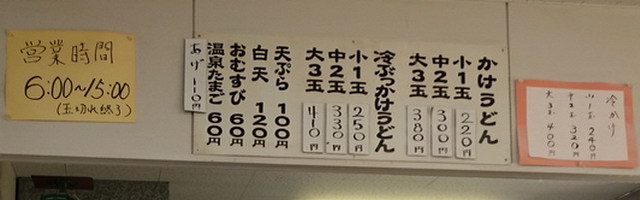 営業時間
6:00~15:00
(玉切れ終了)
かけうどん
小1玉 220円
中2玉 300円
大3玉 380円
冷ぶっかけうどん
小1玉 250円
中2玉 330円
大3玉 410円
天ぷら 100円
白天 120円
おむすび 60円
温泉たまご 60円
あげ 110円
冷かけ
小1玉 240円
中2玉 320円
大3玉 400円